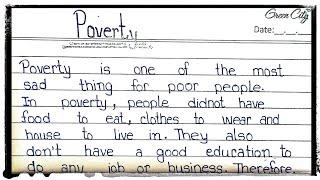 Green City
Poverty
Date:__.__.__
Poverty is one of the most
sad thing for poor people.
In poverty, people didnot have
food to eat, clothes to wear and
house to live in. They also
don't have a good education to
do any job or business. Therefore,